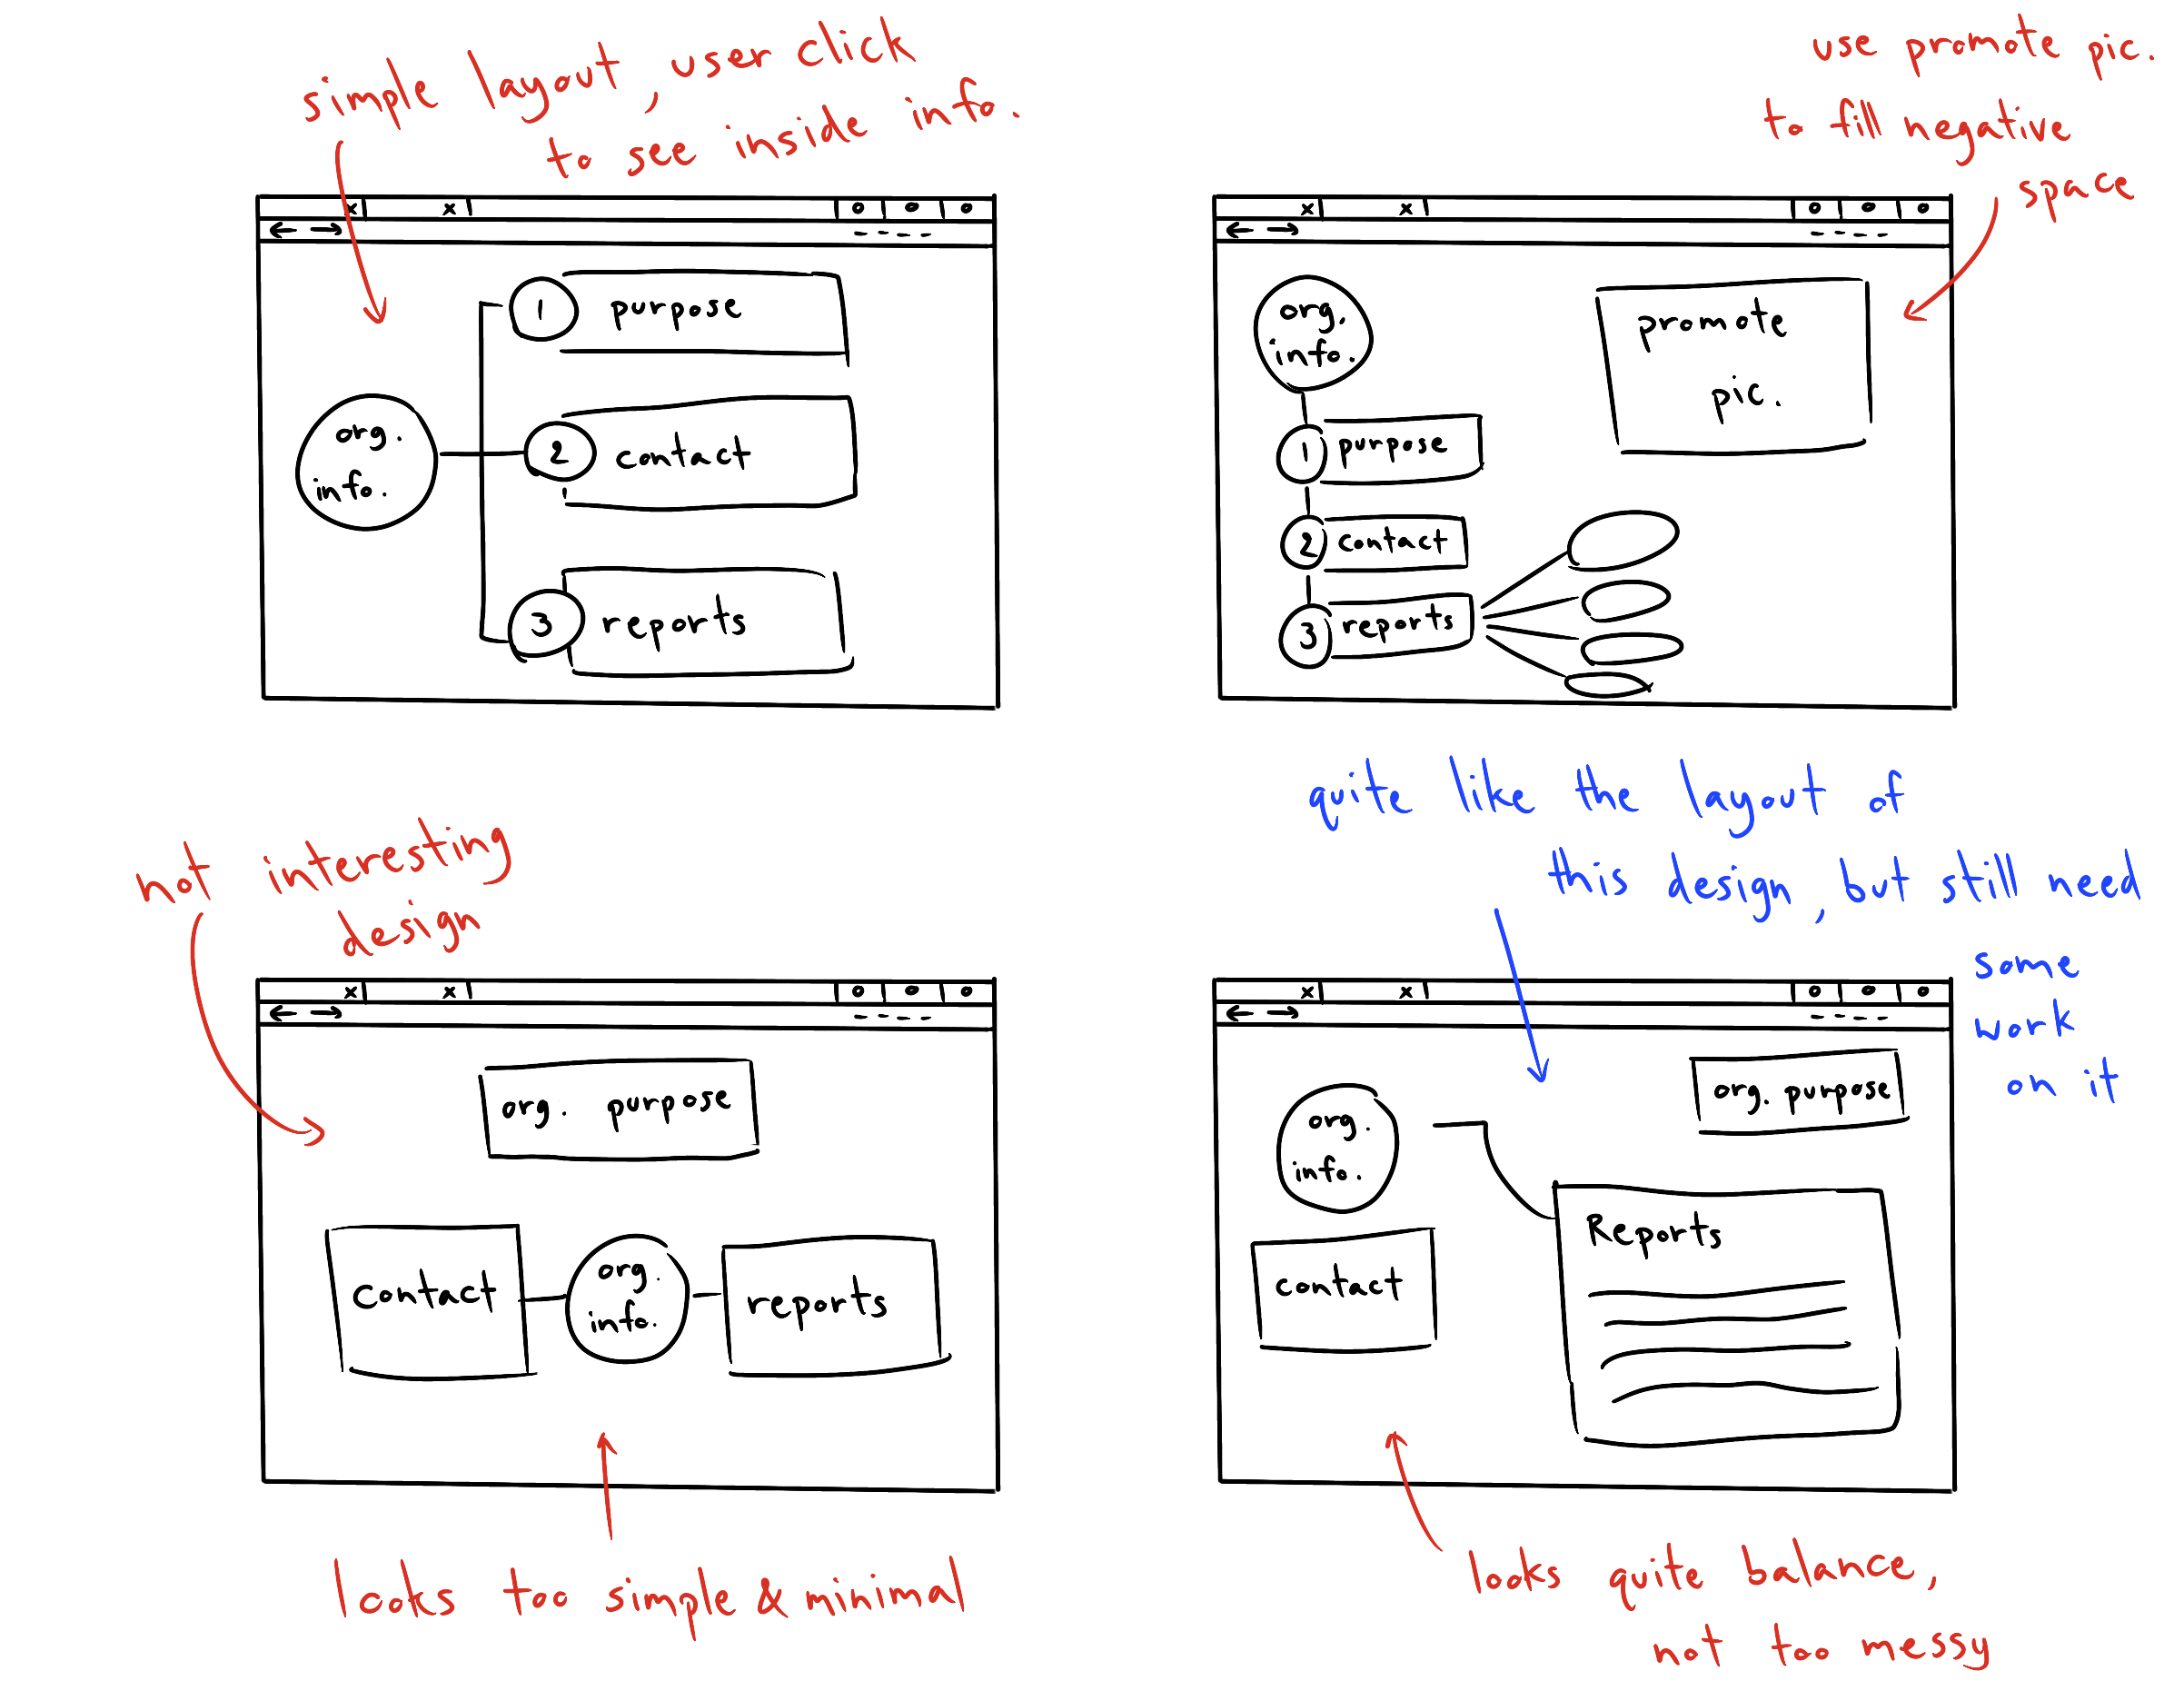 simple layout, user click
to see inside info.
x x o o o
1 purpose
org.
info.
2 contact
3 reports
use promote pic.
to fill negative
space
x x o o o
org.
info.
promote
pic.
1 purpose
2 contact
3 reports
not interesting
design
x x o o o
org. purpose
contact
org.
info.
reports
looks too simple & minimal
quite like the layout of
this design, but still need
some
work
on it
x x o o o
org.
info.
org. purpose
contact
Reports
looks quite balance,
not too messy